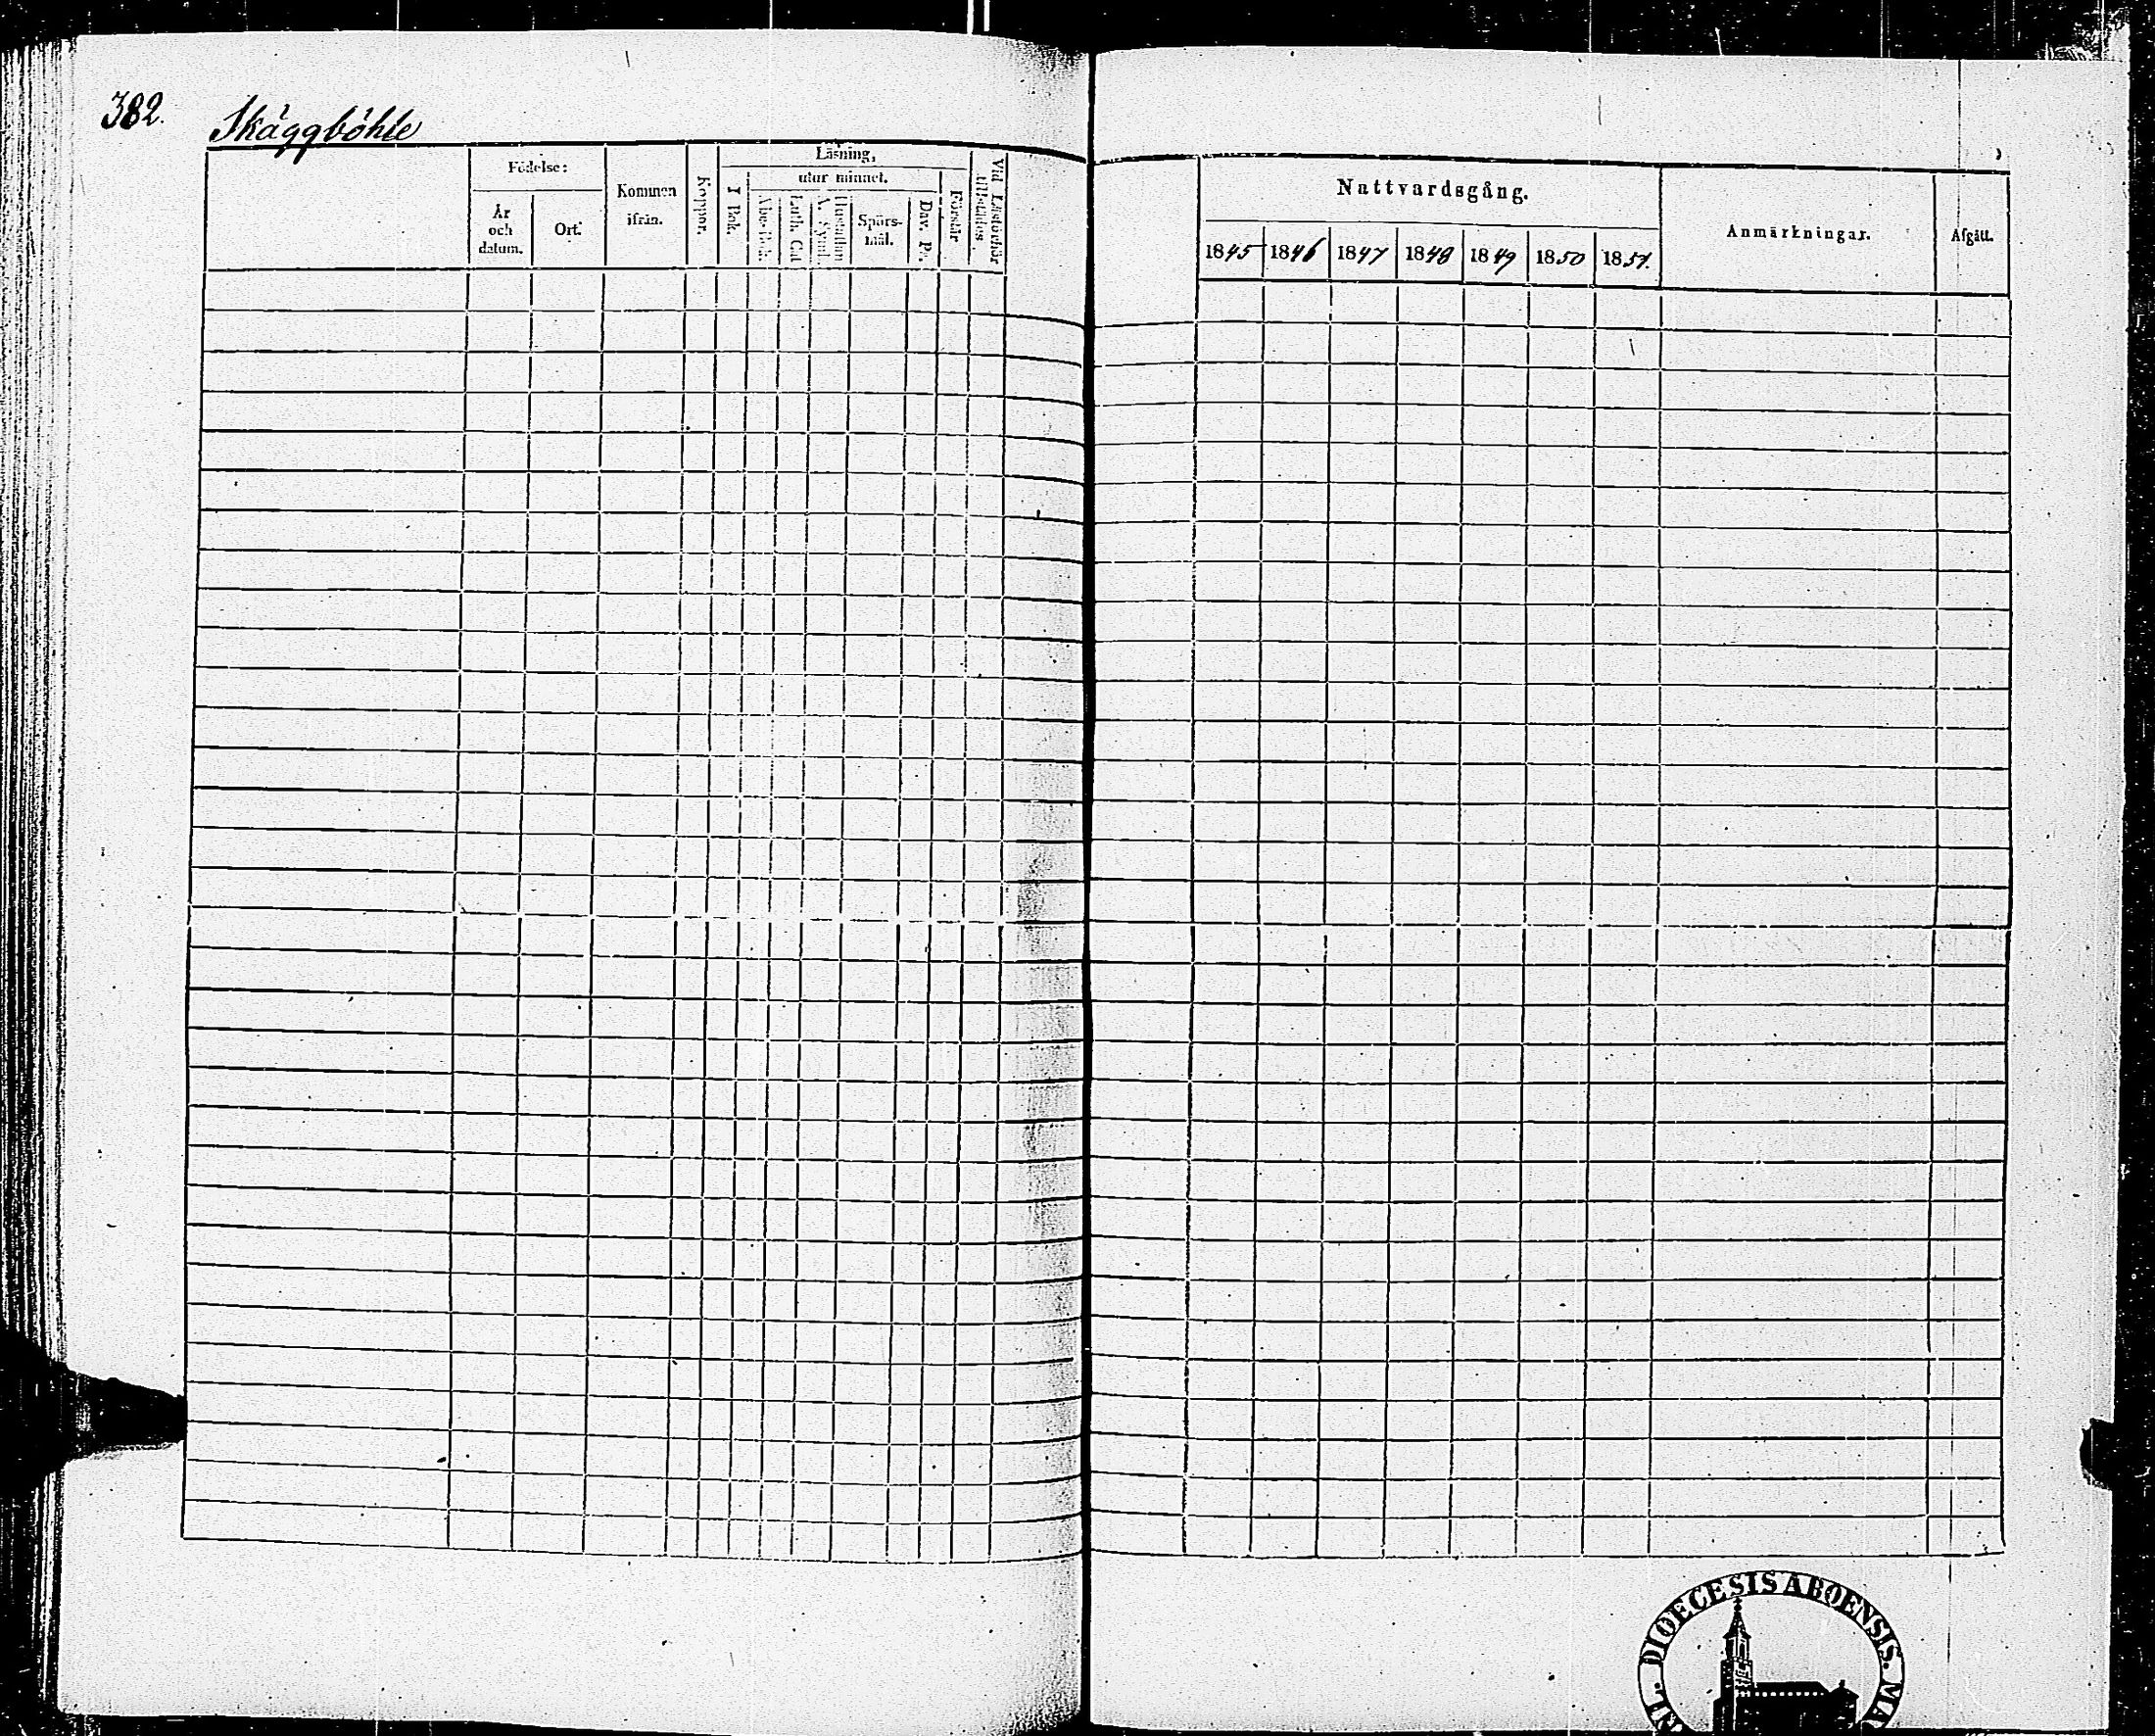 382.
Skäggböhle
Födelse:
År
och
datum.
Ort.
Kommen
ifrån.
Koppor.
Läsning,
I Bok.
utur minnet.
Abc-Bok.
Luth. Cat
Hustaflan
A. Symb.
Spörs-
mål.
Dav. Ps.
Förstår
Vid Läsförhör
tillstädes.
Nattvardsgång.
1845 1846 1847 1848 1849 1850 1851.
Anmärkningar.
Afgått.
DIOECESIS ABOENSIS.